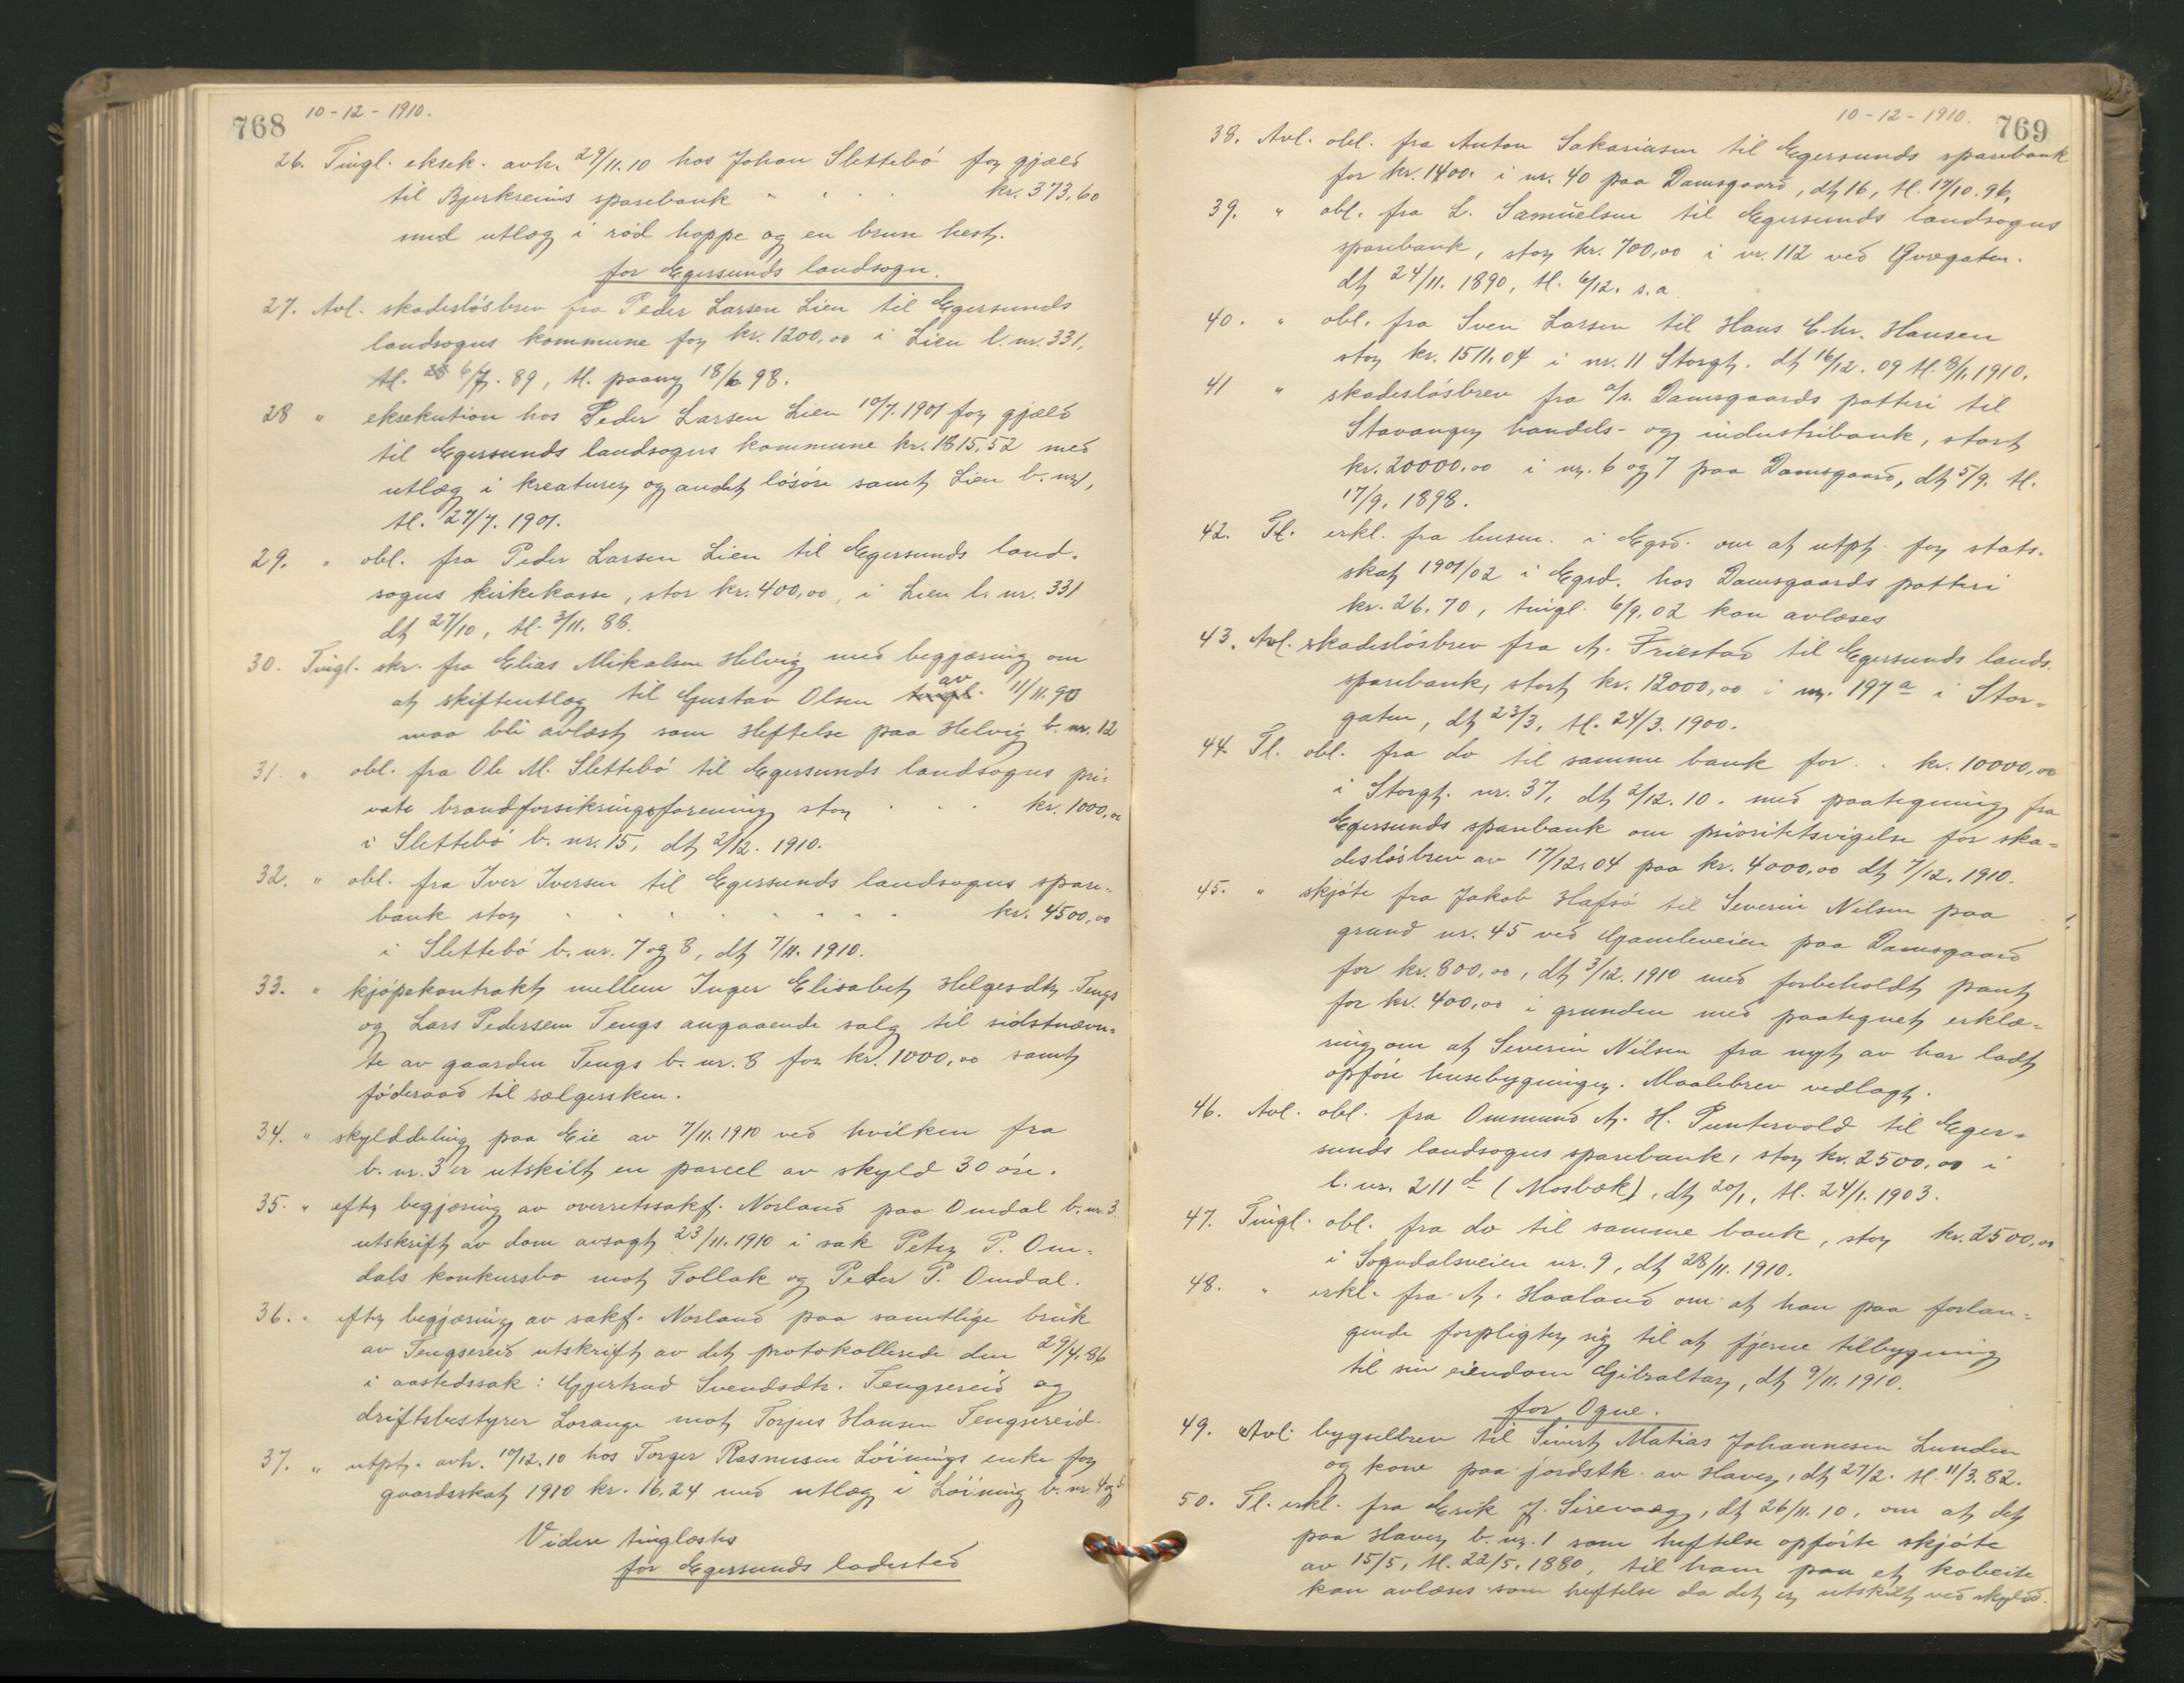 768 10-12-1910.
26. Tingl. eksek. avh. 29/11.10 hos Johan Slettebö for gjæld
til Bjerkreims sparebank " . . . kr. 373,60
med utlæg i röd hoppe og en brun hest.
for Egersunds landsogn.
27. Avl. skadeslösbrev fra Peder Larsen Lien til Egersunds
landsogns kommune for kr. 1200,00 i Lien l. nr. 331,
tl. 6/7. 89, tl. paany 18/6 98.
28 " eksekution hos Peder Larsen Lien 10/7. 1901 for gjæld
til Egersunds landsogns kommune kr. 1815,52 med
utlæg i kreaturer og andet lösöre samt Lien b. nr 1,
tl. 27/7. 1901.
29. " obl. fra Peder Larsen Lien til Egersunds land-
sogns kirkekasse, stor kr. 400,00, i Lien l. nr. 331
dt 27/10, tl. 3/11. 88.
30. Tingl. skr. fra Elias Mikalsen Helvig med begjæring om
at skifteutlæg til Gustav Olsen tingl. av 11/11.90
maa bli avlæst som Heftelse paa Helvig b. nr. 12
31. " obl. fra Ole M. Slettebö til Egersunds landsogns pri-
vate brandforsikringsforening stor . . . kr. 1000,00
i Slettebö b. nr. 15, dt 2/12. 1910.
32. " obl. fra Iver Iversen til Egersunds landsogns spare-
bank stor . . . . . . . . kr. 4500,00
i Slettebö b. nr. 7 og 8, dt 7/11. 1910.
33. " kjöpekontrakt mellem Inger Elisabet Helgesdtr Tengs
og Lars Pedersen Tengs angaaende salg til sidstnævn-
te av gaarden Tengs b. nr. 8 for kr. 1000,00 samt
föderaad til sælgersken.
34. " skylddeling paa Eie av 7/11. 1910 ved hvilken fra
b. nr. 3 er utskilt en parcel av skyld 30 öre.
35. " efter begjæring av overretssakf. Norland paa Omdal b. nr. 3.
utskrift av dom avsagt 23/11. 1910 i sak Peter P. Om-
dals konkursbo mot Tollak og Peder P. Omdal.
36. " efter begjæring av sakf. Norland paa samtlige bruk
av Tengsereid utskrift av det protokollerede den 29/4. 86
i aastedssak: Gjertrud Svendsdtr. Tengsereid og
driftsbestyrer Lorange mot Torjus Hansen Tengsereid.
37. " utpt. avh. 10/12.10 hos Torger Rasmusen Löinings enke for
gaardsskat 1910 kr. 16,24 med utlæg i Löining b. nr. 4 og 5
Videre tinglæstes
for Egersunds ladested
10-12-1910. 769
38. Avl. obl. fra Anton Sakariasen til Egersunds sparebank
for kr. 1400. i nr. 40 paa Damsgaard, dt 16, tl. 17/10. 96,
39. " obl. fra L. Samuelsen til Egersunds landsogns
sparebank, stor kr. 700,00 i nr. 112 ved Øvregaten.
dt 24/11. 1890, tl. 6/12. s.a.
40. " obl. fra Sven Larsen til Hans Chr. Hansen
stor kr. 1511,04 i nr. 11 Storgt. dt 16/12. 09 tl. 8/1. 1910.
41 " skadeslösbrev fra a/s. Damsgaards potteri til
Stavanger handels- og industribank, stort
kr. 20000,00 i nr. 6 og 7 paa Damsgaard, dt 5/9. tl.
17/9. 1898.
42. Tl. erkl. fra lensm. i Egsd. om at utpt. for stats-
skat 1901/02 i Egsd. hos Damsgaards potteri
kr. 26.70, tingl. 6/9. 02 kan avlæses
43. Avl. skadeslösbrev fra A. Friestad til Egersunds lands.
sparebank, stort kr. 12000,00 i nr. 197 a i Stor-
gaten, dt 23/3, tl. 24/3. 1900.
44. Tl. obl. fra do til samme bank for . . kr. 10000,00
i Storgt. nr. 37, dt 2/12. 10. med paategning fra
Egersunds sparebank om prioritetsvigelse for ska-
deslösbrev av 17/12.04 paa kr. 4000,00 dt 7/12. 1910.
45. " skjöte fra Jakob Hafsö til Severin Nilsen paa
grund nr. 45 ved Gamleveien paa Damsgaard
for kr. 800,00, dt 3/12. 1910 med forbeholdt pant
for kr. 400,00 i grunden med paategnet erklæ-
ring om at Severin Nilsen fra nyt av har ladt
opföre husebygninger. Maalebrev vedlagt.
46. Avl. obl. fra Ommund A. H. Puntervold til Eger-
sunds landsogns sparebank, stor kr. 2500,00 i
l. nr. 211 d (Mosbæk), dt 20/1, tl. 24/1. 1903.
47. Tingl. obl. fra do til samme bank, stor kr. 2500,00
i Sogndalsveien nr. 9, dt 28/11. 1910.
48. " erkl. fra A. Haaland om at han paa forlan-
gende forpligter sig til at fjerne tilbygning
til sin eiendom Gibraltar, dt 9/11. 1910.
for Ogne.
49. Avl. bygselbrev til Sivert Matias Johannesen Lunden
og kone paa jordstk. av Haver, dt 27/2. tl. 11/3. 82.
50. Tl. erkl. fra Erik J. Sirevaag, dt 26/11. 10, om at det
paa Haver b. nr. 1 som heftelse opförte skjöte
av 15/5, tl. 22/5. 1880, til ham paa et kobeite
kan avlæses som heftelse da det er utskilt ved skyldd.